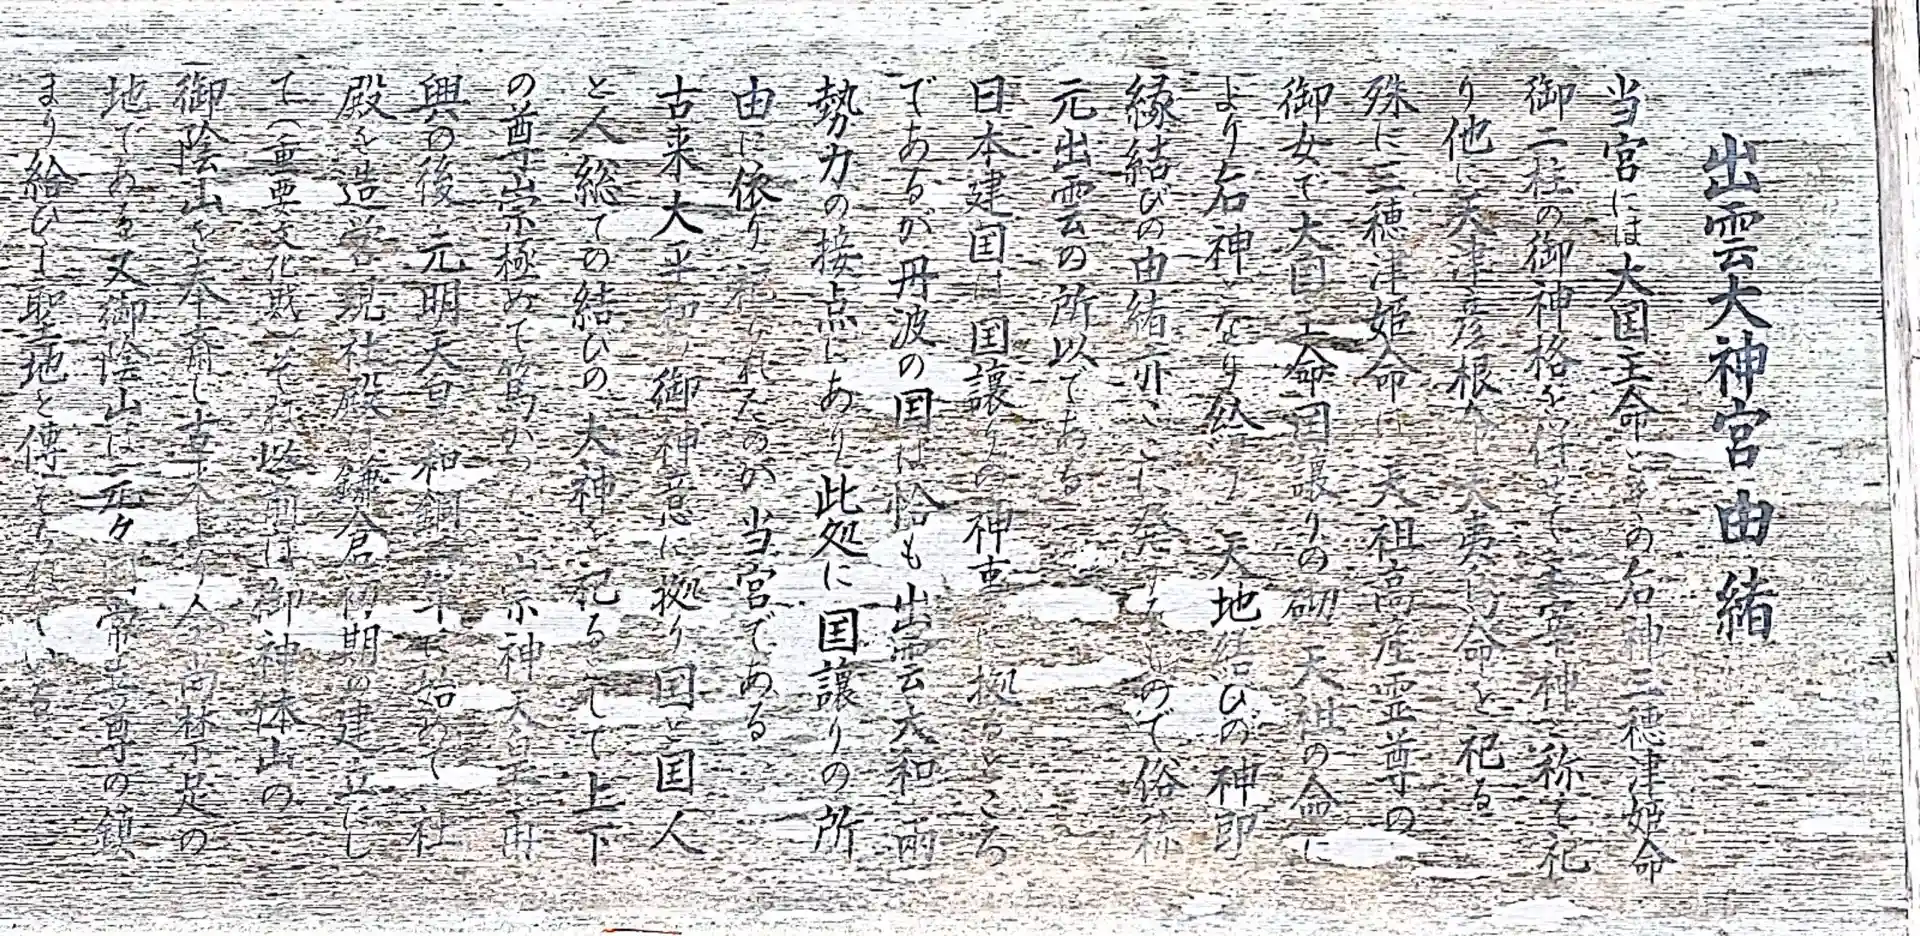 出雲大神宮由緒
当宮には大国主命その后神三穂津姫命
御二柱の御神格を併せて主宰神と称え祀
り他に天津彦根命天夷鳥命を祀る
殊に三穂津姫命は天祖高産霊尊の
御女で大国主命国譲りの砌天祖の命に
より后神となり給う天地結びの神即
縁結びの由緒亦ここに発するもので俗称
元出雲の所以である
日本建国は国譲りの神事に拠るところ
であるが丹波の国は恰も出雲大和両
勢力の接点にあり此処に国譲りの所
由に依り祀られたのが当宮である
古来大平和の御神意に拠り国と国人
と人総ての結びの大神と祀るとして上下
の尊崇極めて篤かった 崇神天皇再
興の後 元明天皇 和銅二年 始めて社
殿を造営 現社殿は鎌倉初期の建立にし
て(重要文化財)それ以前は御神体山の
御陰山を奉斎し古来より今尚禁足の
地である又御陰山は元々国常立尊の鎮
まり給ひし聖地と傳えられている